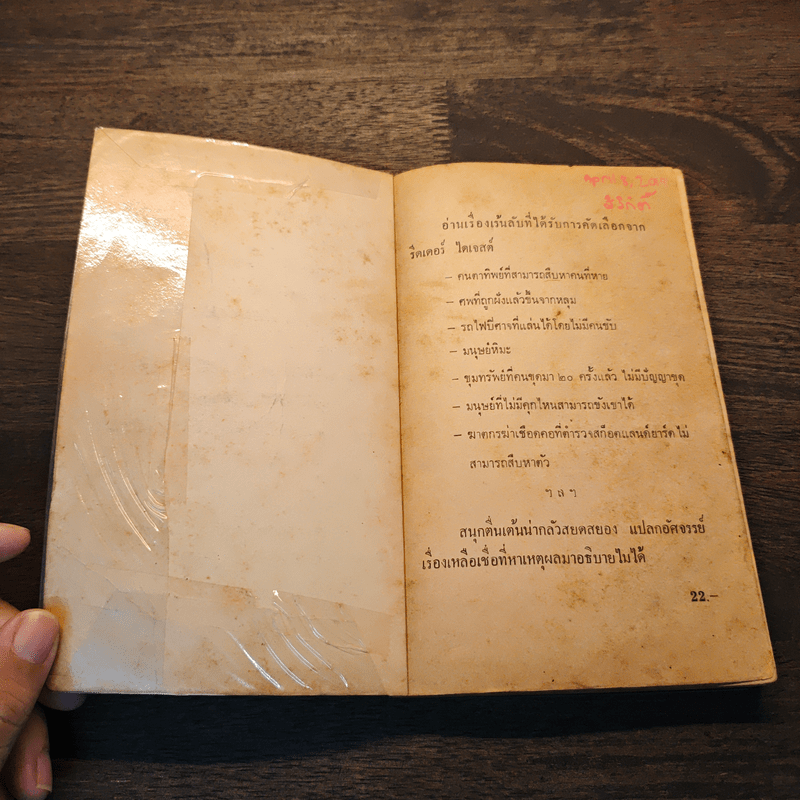 สิริกิติ์
อ่านเรื่องเร้นลับที่ได้รับการคัดเลือกจาก
รีดเดอร์ ไดเจสต์
– คนตาทิพย์ที่สามารถสืบหาคนที่หาย
– ศพที่ถูกฝังแล้วขึ้นจากหลุม
– รถไฟปีศาจที่แล่นได้โดยไม่มีคนขับ
– มนุษย์หิมะ
– ขุมทรัพย์ที่คนขุดมา ๒๐ ครั้งแล้ว ไม่มีปัญญาขุด
– มนุษย์ที่ไม่มีคุกไหนสามารถขังเขาได้
– ฆาตกรฆ่าเชือดคอที่ตำรวจสก๊อตแลนด์ยาร์ดไม่
สามารถสืบหาตัว
ฯ ล ฯ
สนุกตื่นเต้นน่ากลัวสยดสยอง แปลกอัศจรรย์
เรื่องเหลือเชื่อที่หาเหตุผลมาอธิบายไม่ได้
22.–